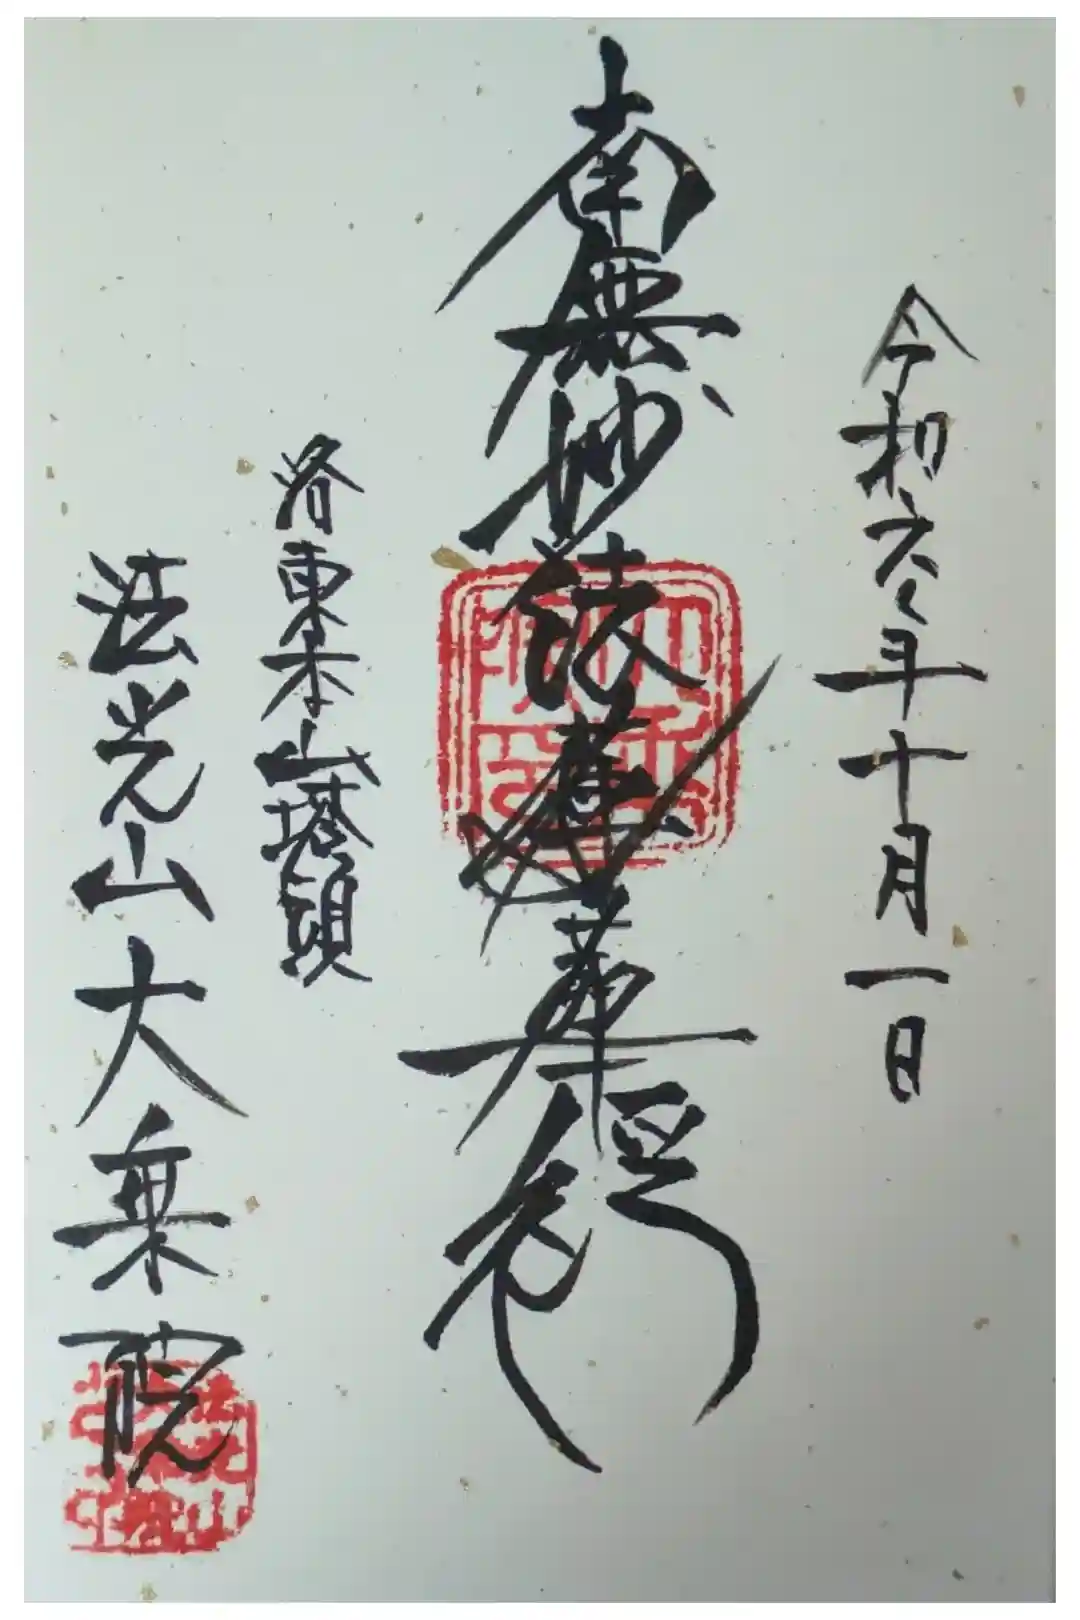 令和六年十月一日
南無妙法蓮華經
洛東本山塔頭
法光山大乗院